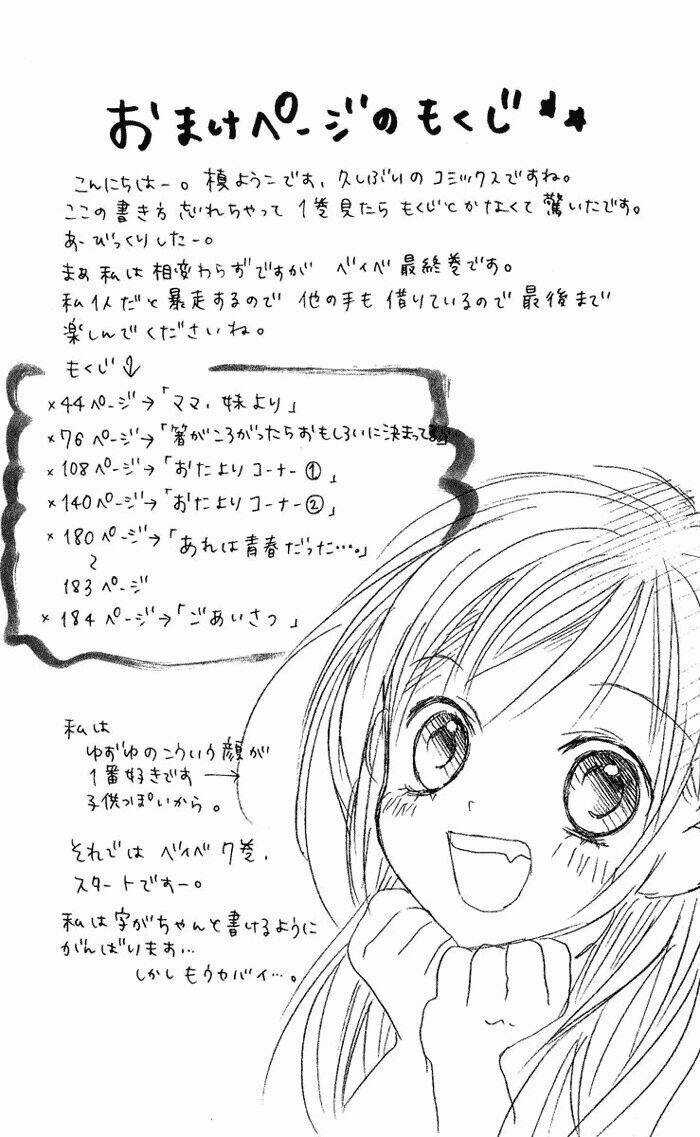 おまけページのもくじ★★
こんにちはー。槙ようこです、久しぶりのコミックスですね。
ここの書き方忘れちゃって1巻見たらもくじとかなくて驚いたです。
あーびっくりしたー。
まぁ私は相変わらずですが ベイベ最終巻です。
私1人だと暴走するので 他の手も借りているので最後まで
楽しんでくださいね。
もくじ↓
×44ページ→「ママ、妹より」
×76ページ→「箸がころがったらおもしろいに決まってる」
×108ページ→「おたよりコーナー①」
×140ページ→「おたよりコーナー②」
×180ページ→「あれは青春だった…。」
〜
183ページ
×184ページ→「ごあいさつ」
私は
ゆずゆのこういう顔が
1番好きです→
子供っぽいから。
それでは ベイベ7巻、
スタートですー。
私は字がちゃんと書けるように
がんばります…
しかしもうヤバイ…。